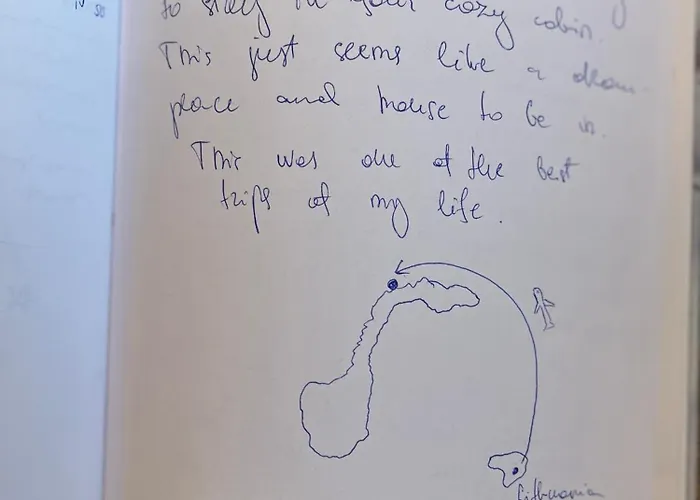 to stay in your cozy cabin.
This just seems like a dream
place and house to be in.
This was one of the best
trips of my life.
Lithuanian